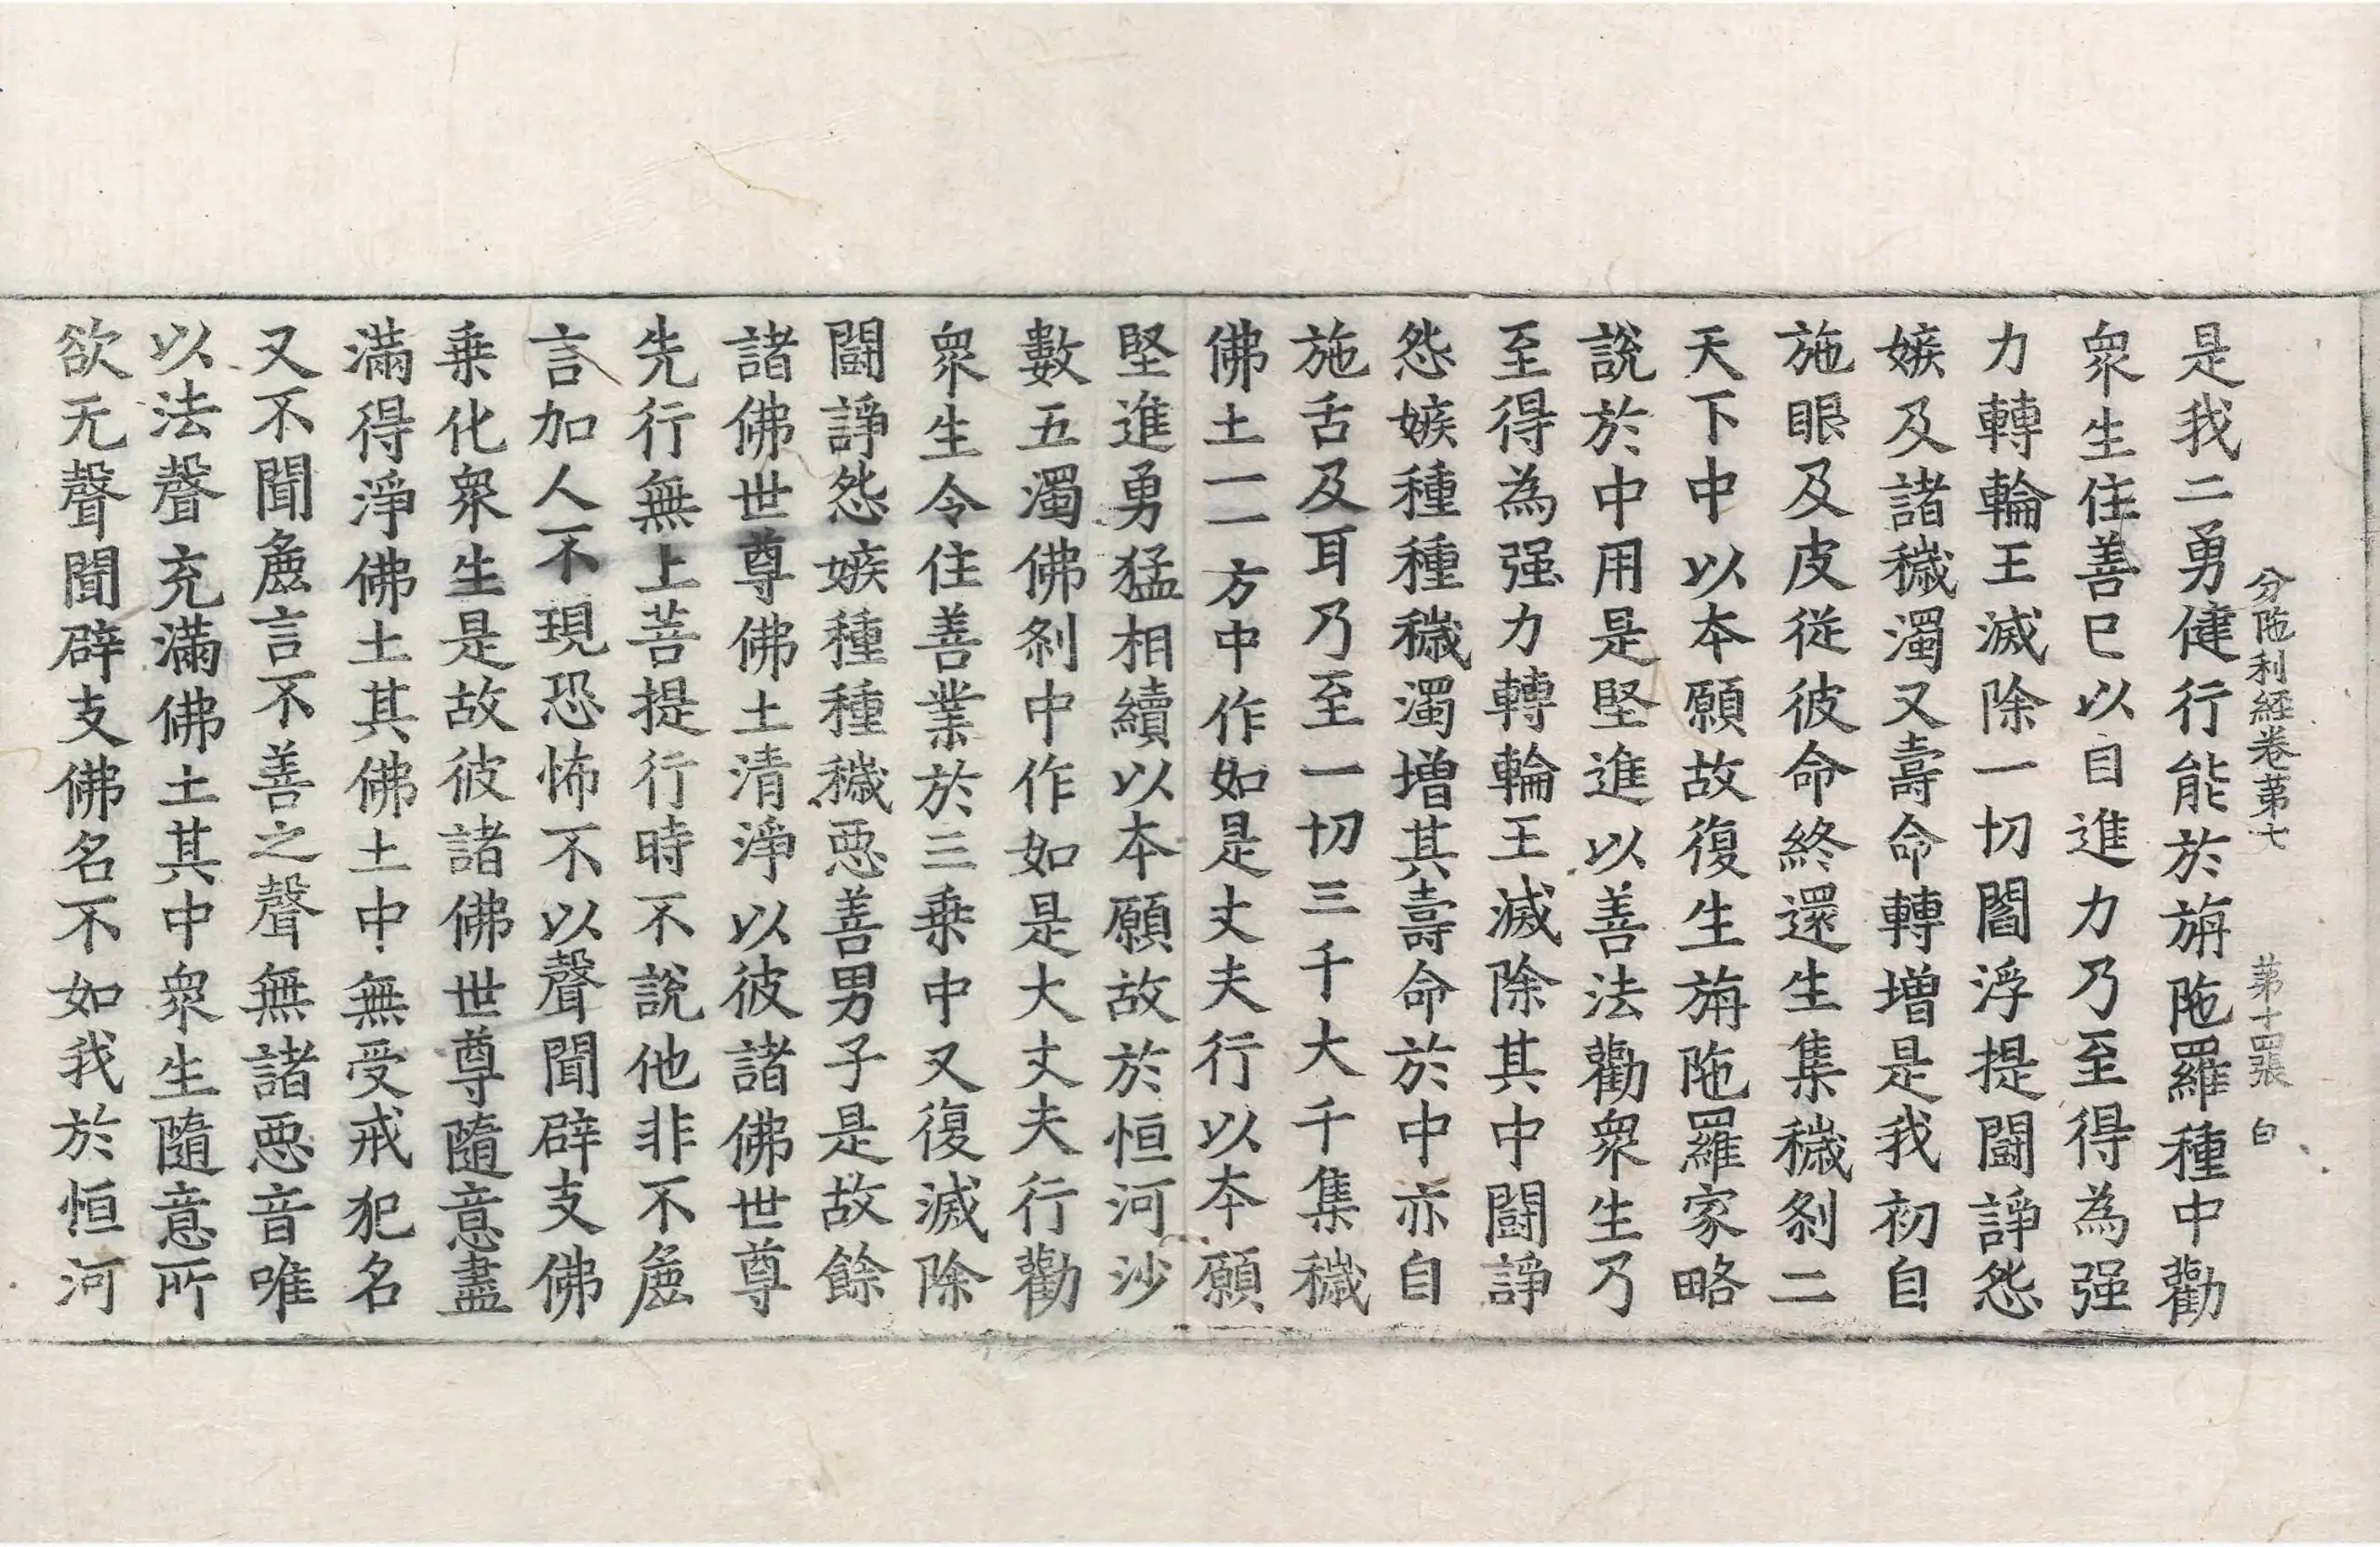 分陁利經卷苐七 苐十四張 白
是我二勇健行能於旃陁羅種中勸
衆生住善已以自進力乃至得為强
力轉輪王滅除一切閻浮提鬪諍怨
嫉及諸穢濁又壽命轉增是我初自
施眼及皮從彼命終還生集穢剎二
天下中以本願故復生旃陁羅家略
說於中用是堅進以善法勸衆生乃
至得為强力轉輪王滅除其中鬪諍
怨嫉種種穢濁增其壽命於中亦自
施舌及耳乃至一切三千大千集穢
佛土一一方中作如是丈夫行以本願
堅進勇猛相續以本願故於恒河沙
數五濁佛剎中作如是大丈夫行勸
衆生令住善業於三乗中又復滅除
鬪諍怨嫉種種穢惡善男子是故餘
諸佛世尊佛土清淨以彼諸佛世尊
先行無上菩提行時不說他非不麁
言加人不現恐怖不以聲聞辟支佛
乗化衆生是故彼諸佛世尊隨意盡
滿得淨佛土其佛土中無受戒犯名
又不聞麁言不善之聲無諸惡音唯
以法聲充滿佛土其中衆生隨意所
欲无聲聞辟支佛名不如我於恒河